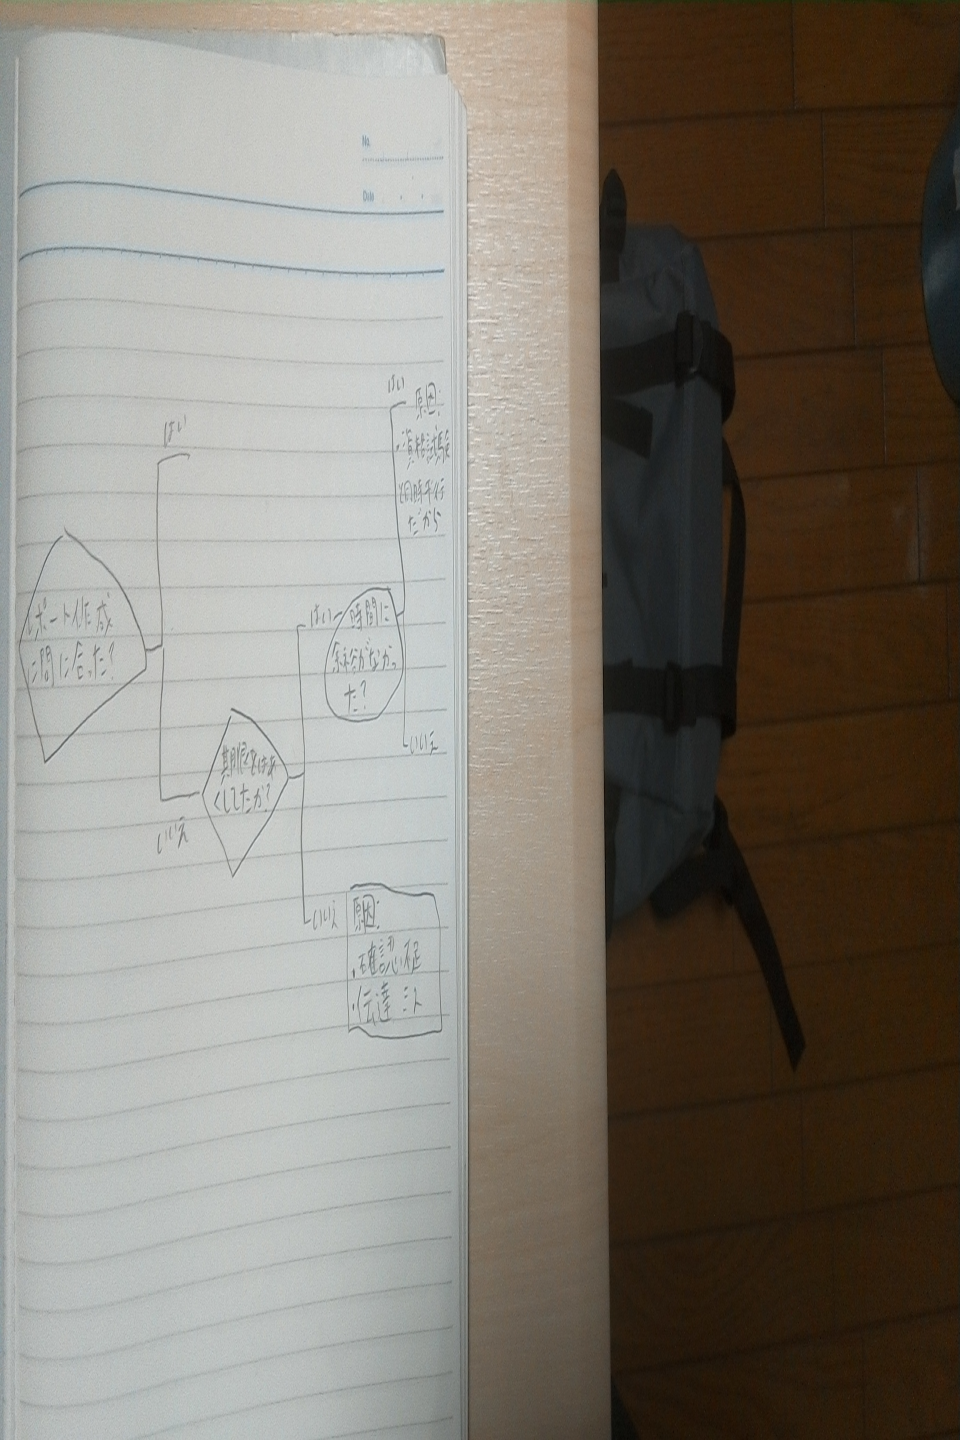 No.
Date
はい
レポート作成
に間に合った?
いいえ
期限をはあ
くしてたか?
はい
時間に
余裕がなかっ
た?
はい
原因:
・資格試験
と同時平行
だから
いいえ
いいえ
原因:
・確認不足
・伝達ミス